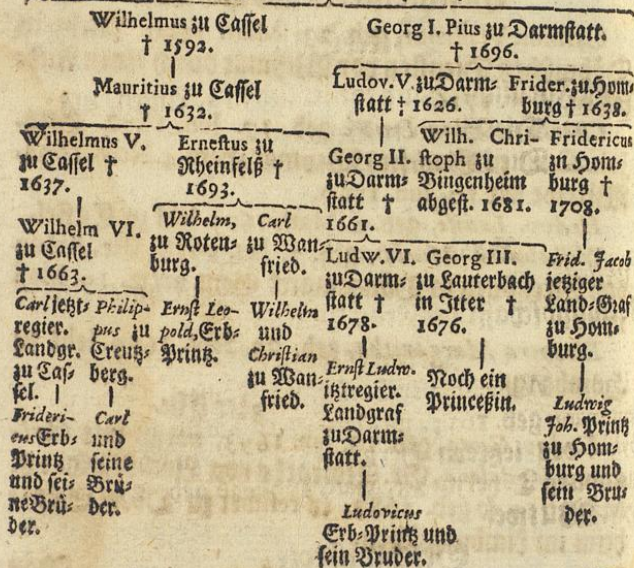 Wilhelmus zu Cassel
† 1592.
Mauritius zu Cassel
† 1632.
Wilhelmus V.
zu Cassel †
1637.
Wilhelm VI.
zu Cassel
† 1663.
Carl jetzt-
regier.
Landgr.
zu Cas-
sel.
Frideri-
cus Erb-
Printz
und sei-
ne Brü-
der.
Philip-
pus zu
Creutz-
berg.
Carl
und
seine
Brü-
der.
Ernestus zu
Rheinfelß †
1693.
Wilhelm,
zu Roten-
burg.
Ernst Leo-
pold, Erb-
Printz.
Carl
zu Wan-
fried.
Wilhelm
und
Christian
zu Wan-
fried.
Georg I. Pius zu Darmstatt.
† 1696.
Ludov. V. zu Darm-
statt † 1626.
Georg II.
zu Darm-
statt †
1661.
Ludw. VI.
zu Darm-
statt †
1678.
Ernst Ludw.
itztregier.
Landgraf
zu Darm-
statt.
Ludovicus
Erb-Printz und
sein Bruder.
Georg III.
zu Lauterbach
in Itter †
1676.
Noch ein
Princeßin.
Frider. zu Hom-
burg † 1638.
Wilh. Chri-
stoph zu
Bingenheim
abgest. 1681.
Fridericus
zu Hom-
burg †
1708.
Frid. Jacob
jetziger
Land-Graf
zu Hom-
burg.
Ludwig
Joh. Printz
zu Hom-
burg und
sein Bru-
der.